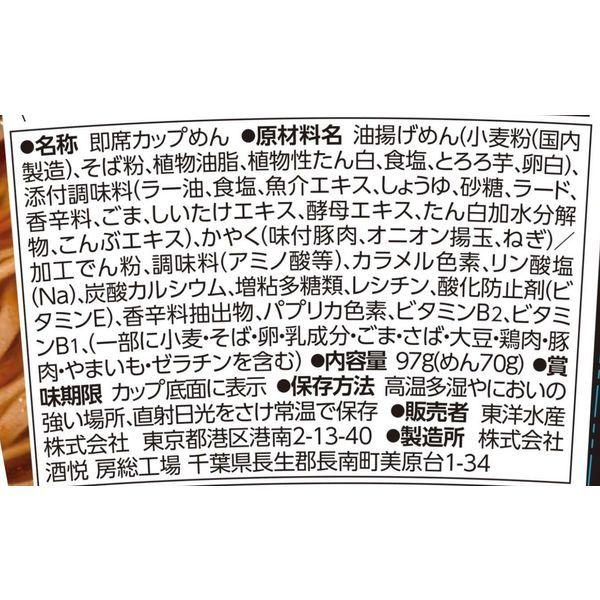 ●名称 即席カップめん ●原材料名 油揚げめん(小麦粉(国内
製造)、そば粉、植物油脂、植物性たん白、食塩、とろろ芋、卵白)、
添付調味料(ラー油、食塩、魚介エキス、しょうゆ、砂糖、ラード、
香辛料、ごま、しいたけエキス、酵母エキス、たん白加水分解
物、こんぶエキス)、かやく(味付豚肉、オニオン揚玉、ねぎ)/
加工でん粉、調味料(アミノ酸等)、カラメル色素、リン酸塩
(Na)、炭酸カルシウム、増粘多糖類、レシチン、酸化防止剤(ビ
タミンE)、香辛料抽出物、パプリカ色素、ビタミンB2、ビタミ
ンB1、(一部に小麦・そば・卵・乳成分・ごま・さば・大豆・鶏肉・豚
肉・やまいも・ゼラチンを含む) ●内容量 97g(めん70g) ●賞
味期限 カップ底面に表示 ●保存方法 高温多湿やにおいの
強い場所、直射日光をさけ常温で保存 ●販売者 東洋水産
株式会社 東京都港区港南2-13-40 ●製造所 株式会社
酒悦 房総工場 千葉県長生郡長南町美原台1-34